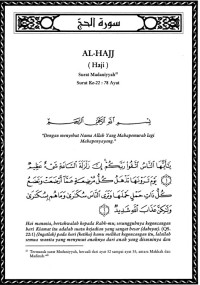 سورة الحج
AL-HAJJ
( Haji )
Surat Madaniyyah
Surat Ke-22 : 78 Ayat
بِسْمِ اللَّهِ الرَّحْمَٰنِ الرَّحِيمِ
"Dengan menyebut Nama Allah Yang Mahapemurah lagi
Mahapenyayang."
يَا أَيُّهَا النَّاسُ اتَّقُوا رَبَّكُمْ إِنَّ زَلْزَلَةَ السَّاعَةِ شَيْءٌ عَظِيمٌ
يَوْمَ تَرَوْنَهَا تَذْهَلُ كُلُّ مُرْضِعَةٍ عَمَّا أَرْضَعَتْ وَتَضَعُ
كُلُّ ذَاتِ حَمْلٍ حَمْلَهَا وَتَرَى النَّاسَ سُكَارَىٰ وَمَا هُم بِسُكَارَىٰ
وَلَٰكِنَّ عَذَابَ اللَّهِ شَدِيدٌ
Hai manusia, bertakwalah kepada Rabb-mu, sesungguhnya kegoncangan
hari Kiamat itu adalah suatu kejadian yang sangat besar (dahsyat). (QS.
22:1) (Ingatlah) pada hari (ketika) kamu melihat kegoncangan itu, lalailah
semua wanita yang menyusui anaknya dari anak yang disusuinya dan